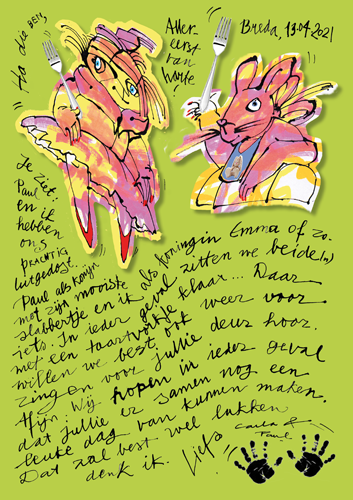 Ha die BEN,
Aller-
eerst
van
harte!
Breda, 13.04.2021
Je ziet:
Paul
en ik
hebben
ons
PRACHTIG
uitgedost.
Paul als konijn
met zijn mooiste
slabbertje en ik als koningin Emma of zo
iets. In ieder geval zitten we beide(n)
met een taartvorkje klaar... Daar
willen we best ook weer voor
zingen voor jullie deur hoor.
Fijn! Wij hopen in ieder geval
dat jullie er samen nog een
leuke dag van kunnen maken.
Dat zal best wel lukken
denk ik.
Liefs
Carla &
Paul